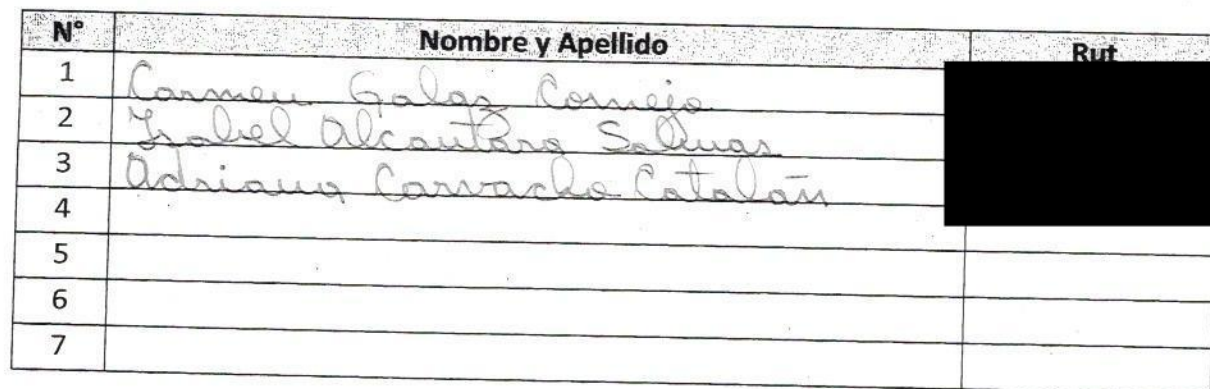 N° Nombre y Apellido Rut
1 Carmen Galaz Cornejo
2 Isabel Alcantara Salinas
3 Adriana Carvacho Catalán
4
5
6
7